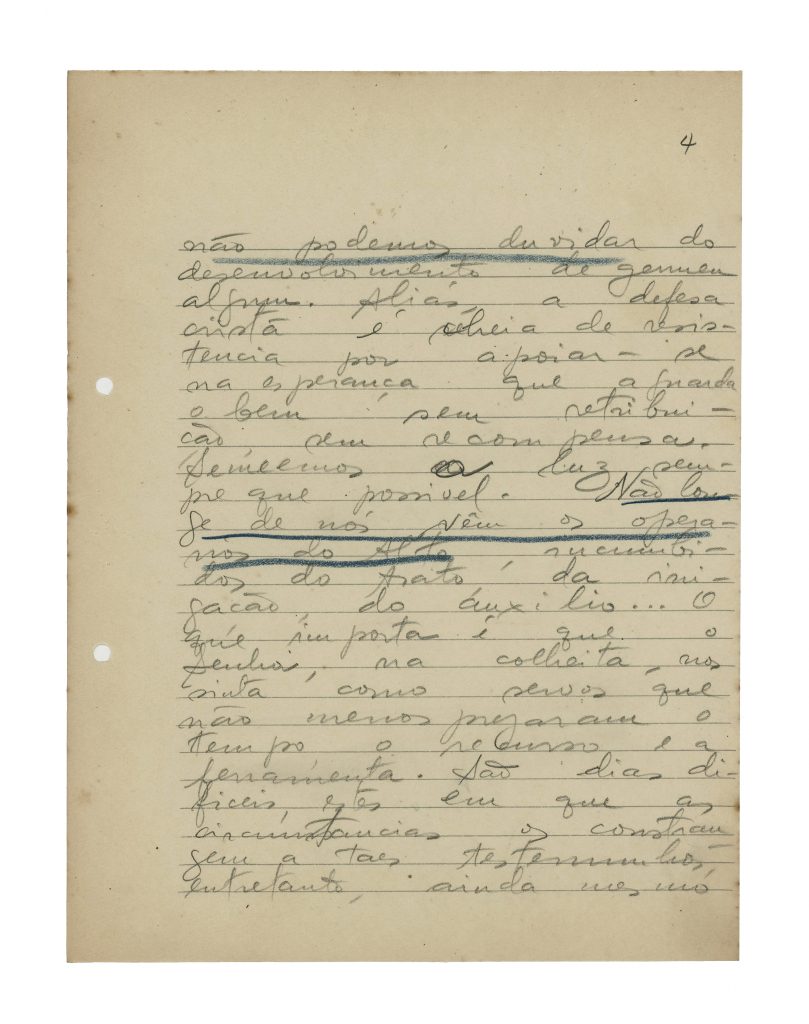 4
não podemos duvidar do
desenvolvimento de germen
algum. Aliás, a defesa
cristã é cheia de resis-
tencia por apoiar-se
na esperança que aguarda
o bem, sem retribui-
ção sem recompensa.
Semeemos a luz sem-
pre que possivel. Não lon-
ge de nós vêm os opera-
rios do Alto, incumbi-
dos do trato, da irri-
gação, do auxilio... O
que importa é que o
Senhor, na colheita, nos
sinta como servos que
não menosprezaram o
tempo o recurso e a
ferramenta. São dias di-
ficeis, estes em que as
circunstancias os constran
gem a taes testemunhos,
entretanto, ainda mesmo